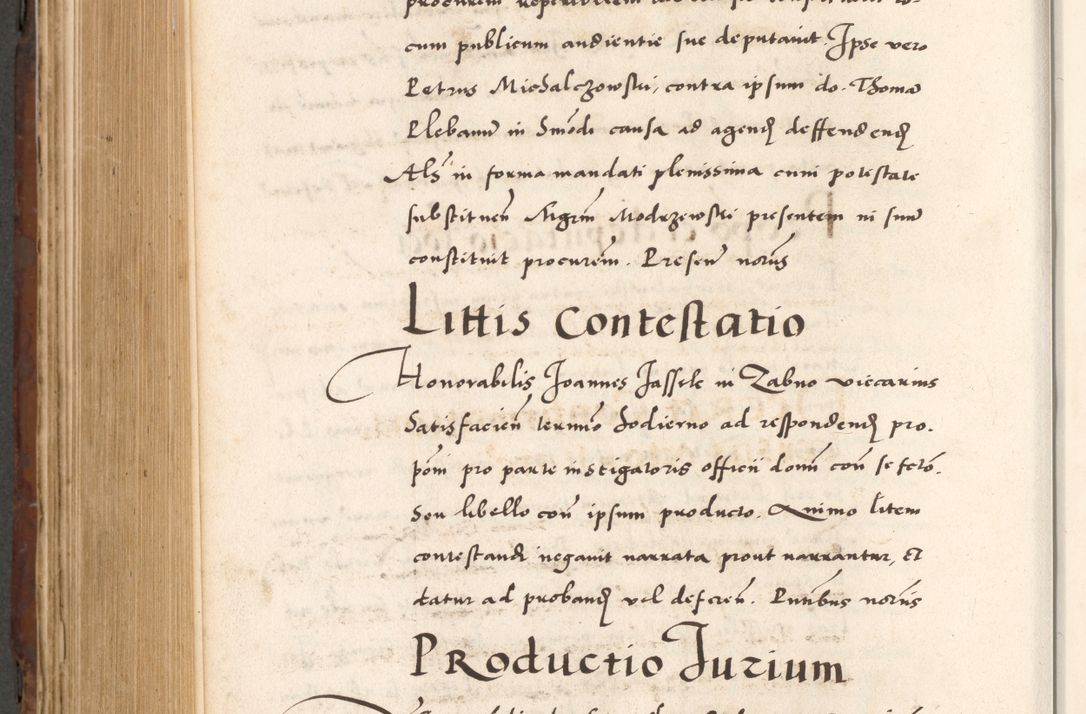 cum publicum audientie sue deputavit. Ipse vero
Petrus Michalczowski, contra ipsum do. Thomā
Plebanū in Smōdi causa ad agend deffendend
Als in forma mandati plenissima cum potestate
substituen Mgrm Modrzewski presentem in suū
constituit procurem. Presen notus
Littis Contestatio
Honorabilis Joannes Jassele in Zabno viccarius
Satisfacien termino hodierno ad respondend pro.
poni pro parte instigatoris officii domi con se fctō.
Seu libello con ipsum producto. Animo litem
contestandi negavit narrata prout narrantur, Et
datur ad proband vel deferen. Pntibus notus
Productio Jurium